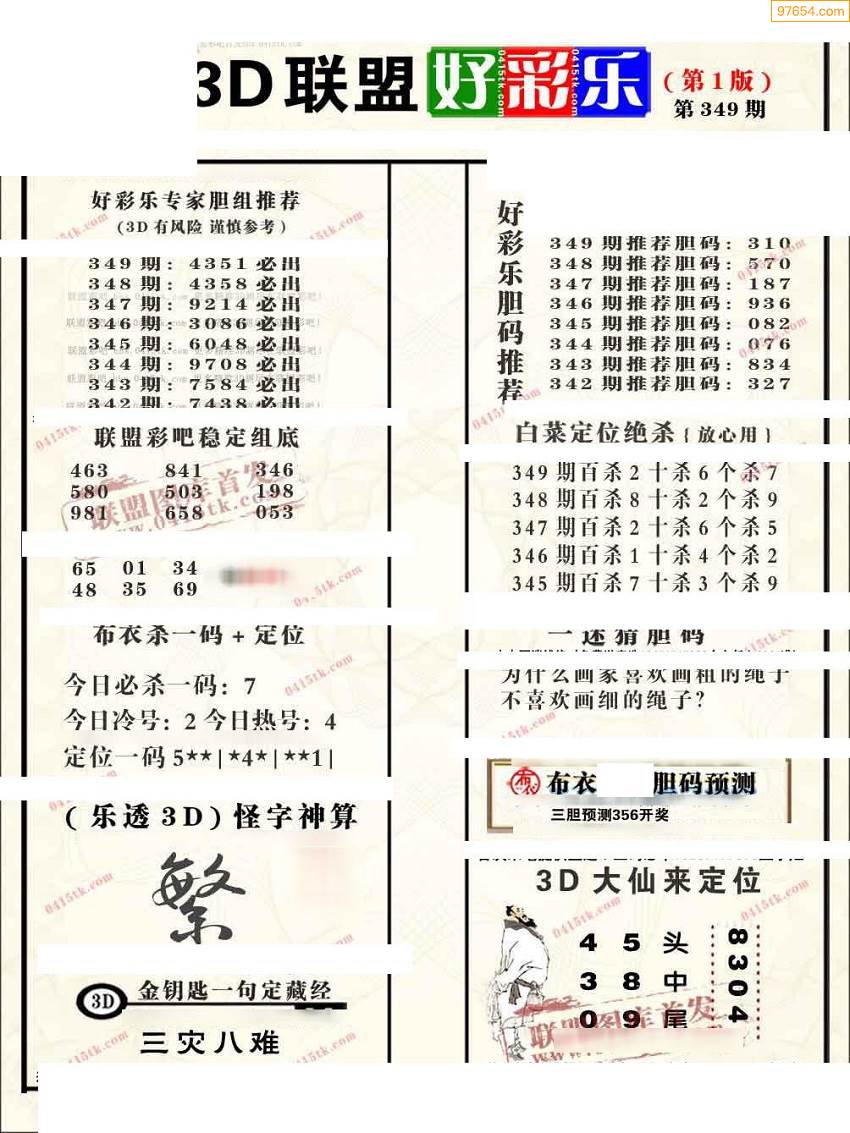 97654.com
3D联盟好彩乐
(第1版)
第349期
好彩乐专家胆组推荐
(3D有风险 谨慎参考)
349期: 4351必出
348期: 4358必出
347期: 9214必出
346期: 3086必出
345期: 6048必出
344期: 9708必出
343期: 7584必出
342期: 7438必出
联盟彩吧稳定组底
463 841 346
580 503 198
981 658 053
65 01 34
48 35 69
布衣杀一码+定位
今日必杀一码: 7
今日冷号: 2 今日热号: 4
定位一码5**|*4*|**1|
(乐透3D)怪字神算
繁
3D 金钥匙一句定藏经
三灾八难
好彩乐胆码推荐
349期推荐胆码: 310
348期推荐胆码: 570
347期推荐胆码: 187
346期推荐胆码: 936
345期推荐胆码: 082
344期推荐胆码: 076
343期推荐胆码: 834
342期推荐胆码: 327
白菜定位绝杀{放心用}
349期百杀2十杀6个杀7
348期百杀8十杀2个杀9
347期百杀2十杀6个杀5
346期百杀1十杀4个杀2
345期百杀7十杀3个杀9
一迷猜胆码
为什么画家喜欢画粗的绳子
不喜欢画细的绳子?
布衣 胆码预测
三胆预测356开奖
3D大仙来定位
4 5 头
3 8 中
0 9 尾
8304
联盟图库首发
www.0415tk.com
0415tk.com